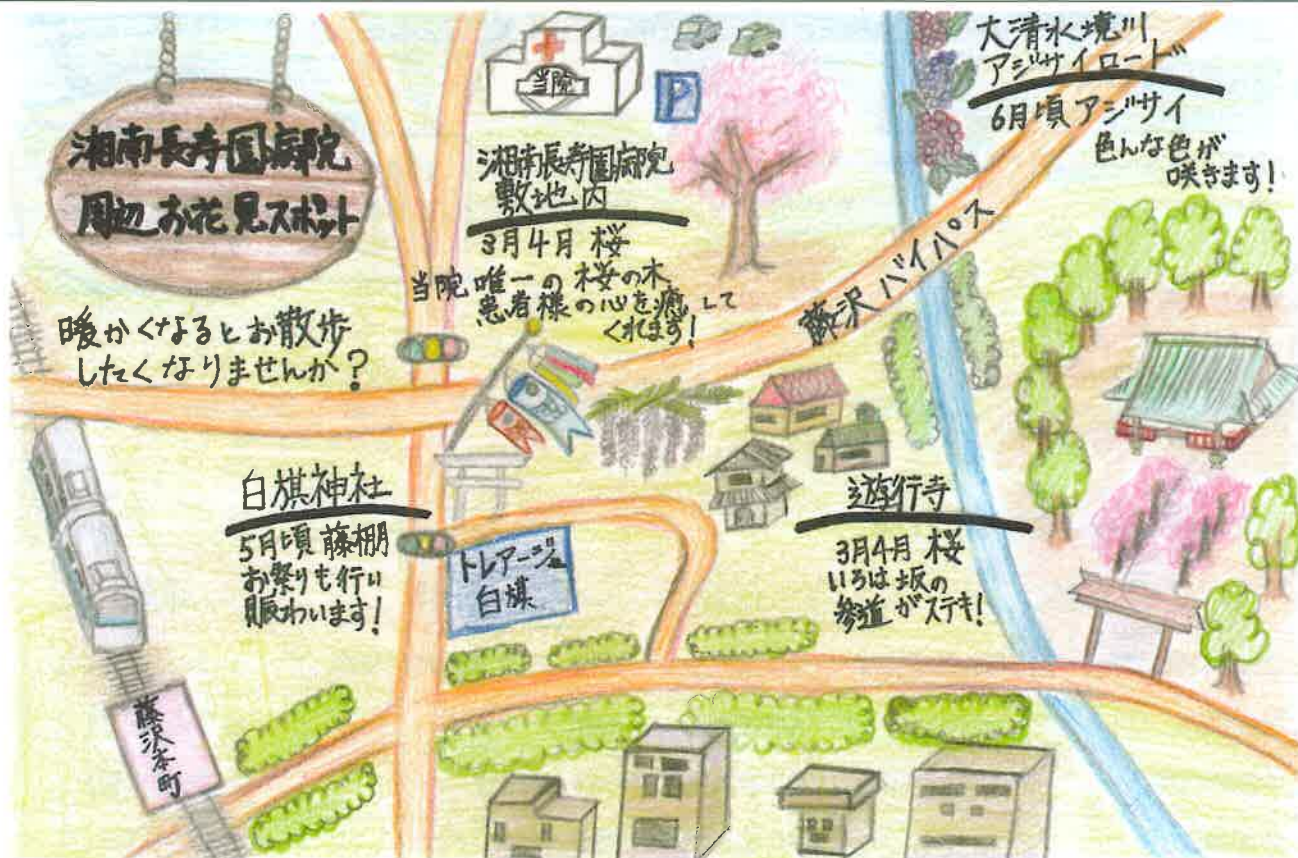 湘南長寿園病院
周辺お花見スポット
暖かくなるとお散歩
したくなりませんか?
当院
P
湘南長寿園病院
敷地内
3月4月 桜
当院唯一の桜の木
患者様の心を癒して
くれます!
大清水境川
アジサイロード
6月頃 アジサイ
色んな色が
咲きます!
藤沢バイパス
白旗神社
5月頃 藤棚
お祭りも行い
賑わいます!
トレアージュ
白旗
遊行寺
3月4月 桜
いろは坂の
参道がステキ!
藤沢本町